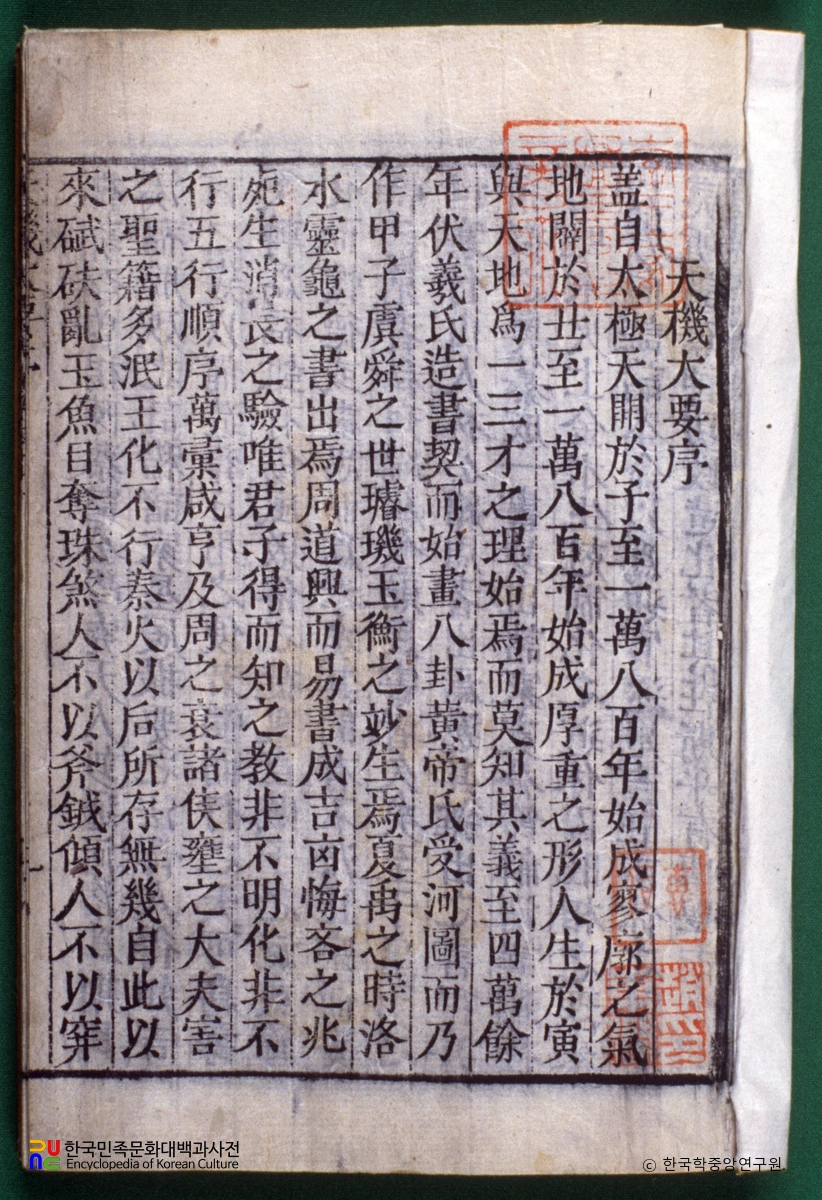 天機大要序
盖自太極天開於子至一萬八百年始成寥廓之氣
地闢於丑至一萬八百年始成厚重之形人生於寅
與天地爲一三才之理始焉而莫知其義至四萬餘
年伏羲氏造書契而始畫八卦黃帝氏受河圖而乃
作甲子虞舜之世璿璣玉衡之妙生焉夏禹之時洛
水靈龜之書出焉周道興而易書成吉凶悔吝之兆
死生消長之驗唯君子得而知之教非不明化非不
行五行順序萬彙咸亨及周之衰諸侯壅之大夫害
之聖籍多泯王化不行秦火以后所存無幾自此以
來碔砆亂玉魚目奪珠煞人不以斧鉞傾人不以穽
한국민족문화대백과사전
Encyclopedia of Korean Culture
© 한국학중앙연구원